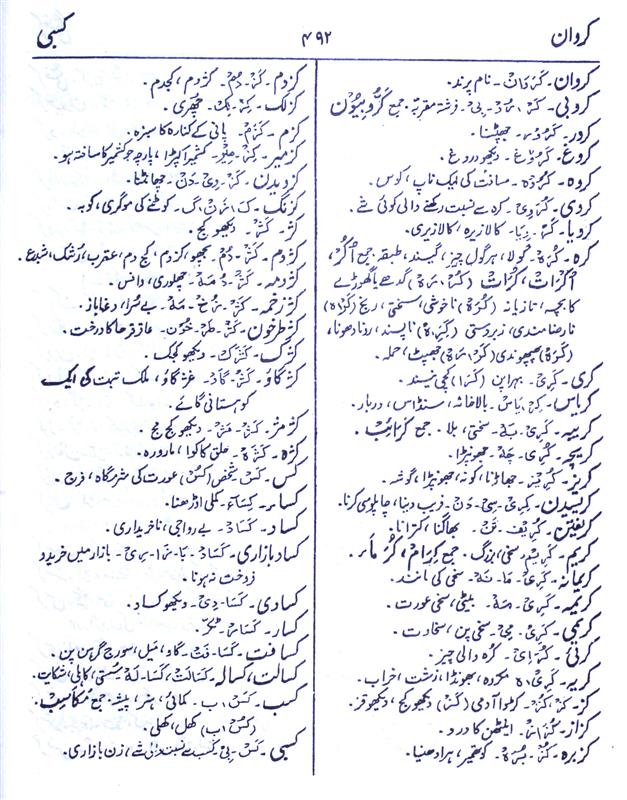 کروان
۴۹۲
کسبی
کروان۔ کَرْ وَانْ۔ نام پرند۔
کروبی۔ کَرْ۔ رُوْ۔ بِیْ۔ فرشتہ مقربہ۔ جمع کَرُّوبِیُّوْن
کرور۔ جھپٹنا۔
کروغ۔ کُرُوْغ۔ دیکھو دروغ۔
کروہ۔ کُرُوْہ۔ مسافت کی ایک ناپ، کوس۔
کروی۔ کُرَوِیْ۔ کرہ سے نسبت رکھنے والی کوئی شے۔
کرویا۔ کالا زیرہ، کالا زیری۔
کرہ۔ کُرَہْ۔ گولا، ہر گول چیز، گیند، طبقہ جمع اُکَرْ،
اُکْرَاتْ، کُرَاتْ (کُرْ۔ رَہْ) گدھے یا گھوڑے
کا بچہ، تازیانہ (کُرْہ) ناخوشی، سختی، رنج (کَرْہ)
نارضامندی، زبردستی (کَرِہْ) ناپسند، رونا دھونا،
(کَرَہ) پھپھوندی (کَرْ۔ رَہْ) جھپٹ، حملہ۔
کری۔ کَرِیْ۔ بہراپن (کَرٰا) کچی نیند۔
کریاس۔ کِرْ یَاسْ۔ بالاخانہ، سنڈاس، دربار۔
کریبہ۔ کَرِیْ۔ بَہْ۔ سختی، بلا۔ جمع کَرَائِبْ۔
کریچہ۔ کُرِیْ۔ چَہْ۔ جھونپڑا۔
کریز۔ کُرِیْز۔ جھاڑنا، کونہ، جھونپڑا، گوشہ۔
کریسیدن۔ کِرِیْ۔ سِیْ۔ دَنْ۔ فریب دینا، چاپلوسی کرنا۔
کریفتن۔ بھاگنا، کترانا۔
کریم۔ کَرِیْم۔ سخی، بزرگ۔ جمع کِرَامْ، کُرَمَاء۔
کریمانہ۔ کَرِیْ۔ مَا۔ نَہْ۔ سخی کی مانند۔
کریمہ۔ کَرِیْ۔ مَہْ۔ بیٹی، سخی عورت۔
کریمی۔ کَرِیْ۔ مِیْ۔ سخی پن، سخاوت۔
کرئی۔ کُرَہ والی چیز۔
کریہ۔ کَرِیْ، ہ مکروہ، بھونڈا، زشت، خراب۔
کز۔ کَزْ، کُزْ۔ کڑوا آدمی (کَزْ) دیکھو کج، دیکھو قز۔
کزاز۔ کُزَازْ۔ اینٹھن کا درد۔
کزبرہ۔ کُزْ۔ بُرَہْ۔ کوتھمیر، ہرا دھنیا۔
کزدم۔ کَزْ۔ دُمْ۔ گژدوم، کجدم۔
کزلک۔ کَزْ۔ لِکْ۔ چھری۔
کزم۔ کَزَمْ۔ پانی کے کنارہ کا سبزہ۔
کزمیر۔ کَزْ۔ مِیْر۔ کشمیرا کپڑا، پارچہ جو کشمیر کا ساختہ ہو۔
کزیدن۔ کَزِیْ۔ دَنْ۔ چھانٹنا۔
کزنگ۔ کوٹنے کی موگری، کوبہ۔
کژ۔ کَژْ۔ دیکھو کج۔
کژدم۔ کَژْ۔ دُمْ۔ بچھو، کزدم، کج دم، عقرب،
کژدمہ۔ کَژْ۔ دُ مَہْ۔ چھلوری، دانس۔
کژزخمہ۔ کَژْ۔ زَخْ۔ مَہْ۔ بے سُرا، دغاباز۔
کژطرخون۔ کَژْ۔ طَرْ۔ خُوْن۔ عاقرقرحا کا درخت۔
کژک۔ کَژَکْ۔ دیکھو کجک۔
کژگاؤ۔ کَژْ۔ گَاوْ۔ غژگاؤ، ملک تبت کی ایک
کوہستانی گائے۔
کژمژ۔ کَژْ۔ مَژْ۔ دیکھو کج مج۔
کژہ۔ کَژَہْ۔ حلق کا کوّا،
کس۔ کَسْ شخص (کُسْ) عورت کی شرمگاہ، فرج۔
کساء۔ کِسَآء۔ کملی، اوڑھنا۔
کساد۔ کَسَادْ۔ بے رواجی، ناخریداری۔
کساد بازاری۔ کَسَاد۔ بَا۔ زَا۔ رِیْ۔ بازار میں خرید و
فروخت نہ ہونا۔
کسادی۔ کَسَا۔ دِیْ۔ دیکھو کساد۔
کسار۔ کَسَار۔ ٹکر۔
کسافت۔ کَسَا۔ فَتْ۔ گاو، میل، سورج گرہن پن۔
کسالت، کسالہ۔ کَسَالَتْ، کَسَا۔ لَہْ سُستی، کاہلی، شکایت۔
کسب۔ کَسْ۔ ب۔ کمائی، ہنر، پیشہ۔ جمع مَکَاسِبْ۔
(کُسْ، ب) کھل، کھلی۔
کسبی۔ کَسْ۔ بِیْ کسب سے نسبت والی شے، زن بازاری۔